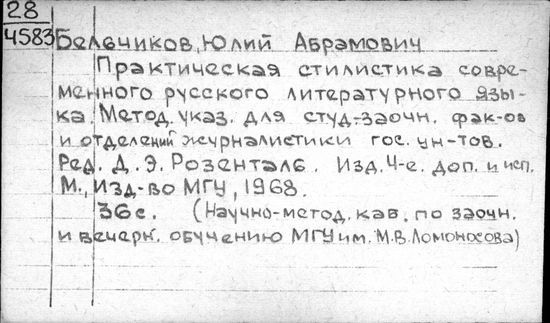 28
4583
Бельчиков, Юлий Абрамович
Практическая стилистика совре-
менного русского литературного язы-
ка. Метод. указ. для студ-заочн. фак-ов
и отделений журналистики гос. ун-тов.
Ред. Д. Э. Розенталь. Изд. 4-е. доп. и исп.
М., Изд-во МГУ, 1968.
36с. (Научно-метод. каб. по заочн.
и вечерн. обучению МГУ им. М.В. Ломоносова)